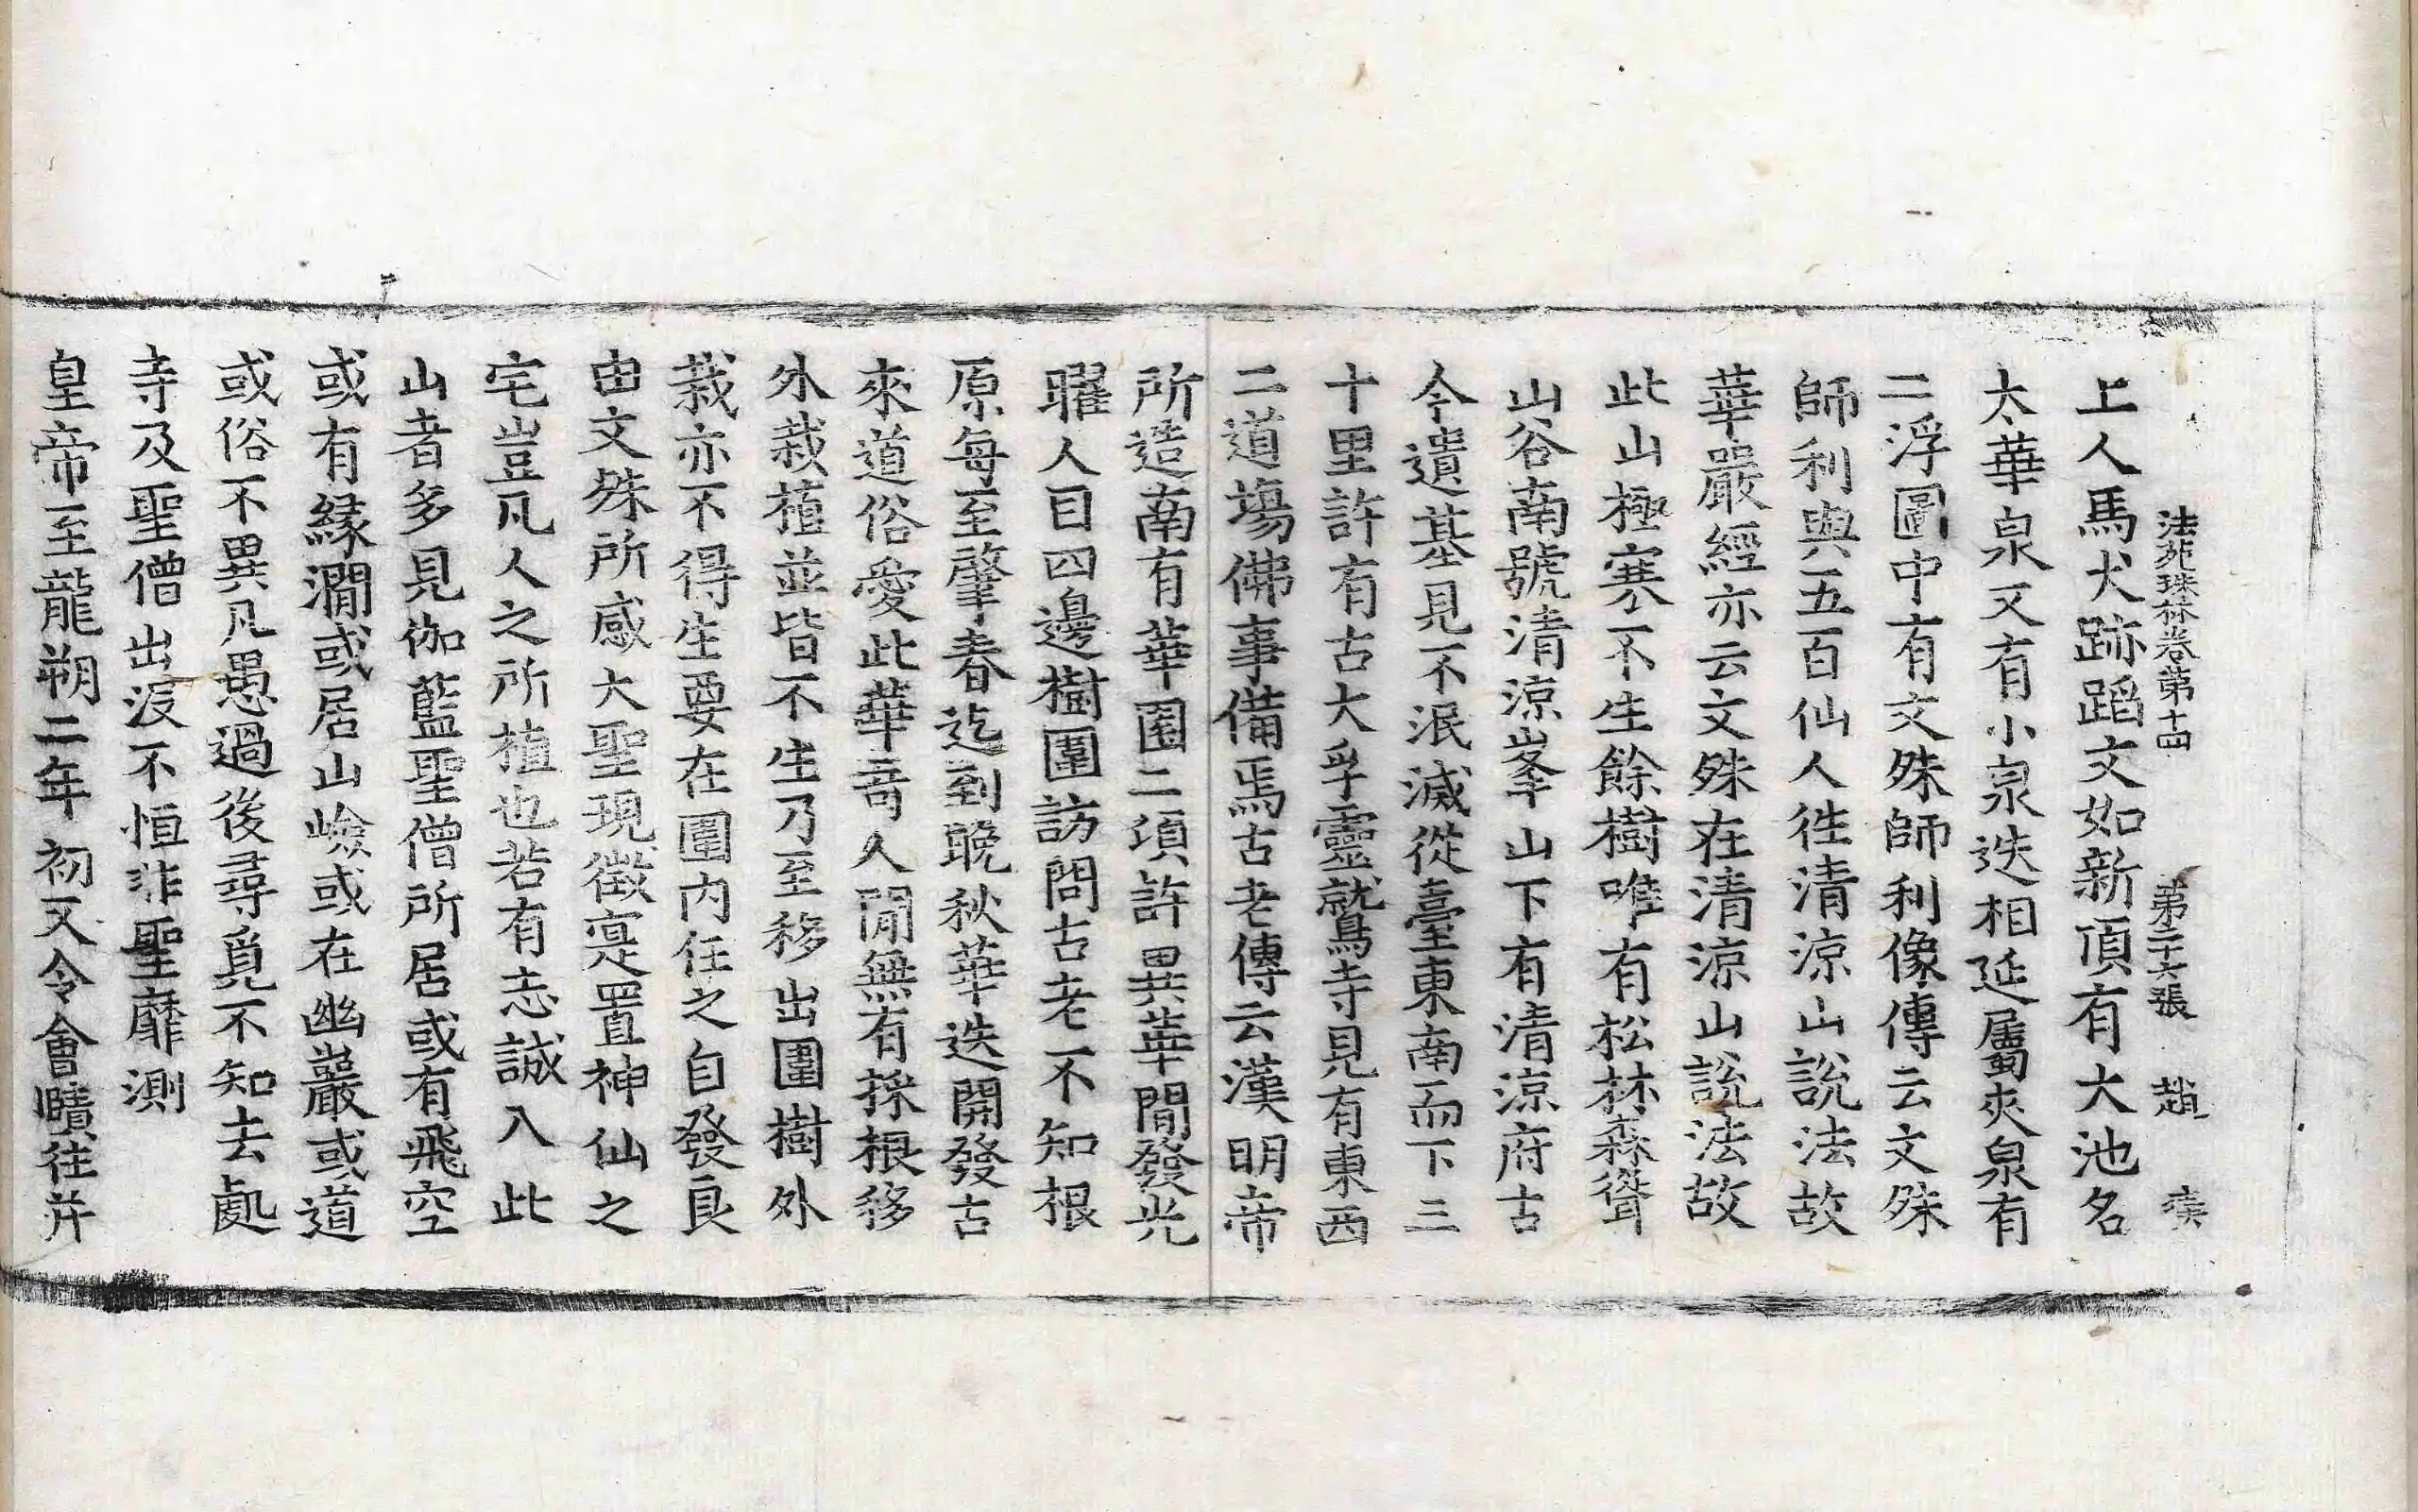 法苑珠林卷第十四 第二十六張 趙
上人馬犬跡蹈文如新頂有大池名
太華泉又有小泉迭相延屬夾泉有
二浮圖中有文殊師利像傳云文殊
師利與五百仙人往清涼山說法故
華嚴經亦云文殊在清涼山說法故
此山極寒不生餘樹唯有松林森聳
山谷南號清涼峯山下有清涼府古
今遺基見不泯滅從臺東南而下三
十里許有古大孚靈鷲寺見有東西
二道場佛事備焉古老傳云漢明帝
所造南有華園二頃許異華間發光
曜人目四邊樹圍訪問古老不知根
原每至肇春迄到晚秋華迭開發古
來道俗愛此華奇人間無有採根移
外栽植並皆不生乃至移出園樹外
栽亦不得生要在園內任之自發良
由文殊所感大聖現徵寔置神仙之
宅豈凡人之所植也若有志誠入此
山者多見伽藍聖僧所居或有飛空
或有緣澗或居山嶮或在幽巖或道
或俗不異凡愚過後尋覓不知去處
寺及聖僧出沒不恒非聖靡測
皇帝至龍朔二年初又令會賾往并